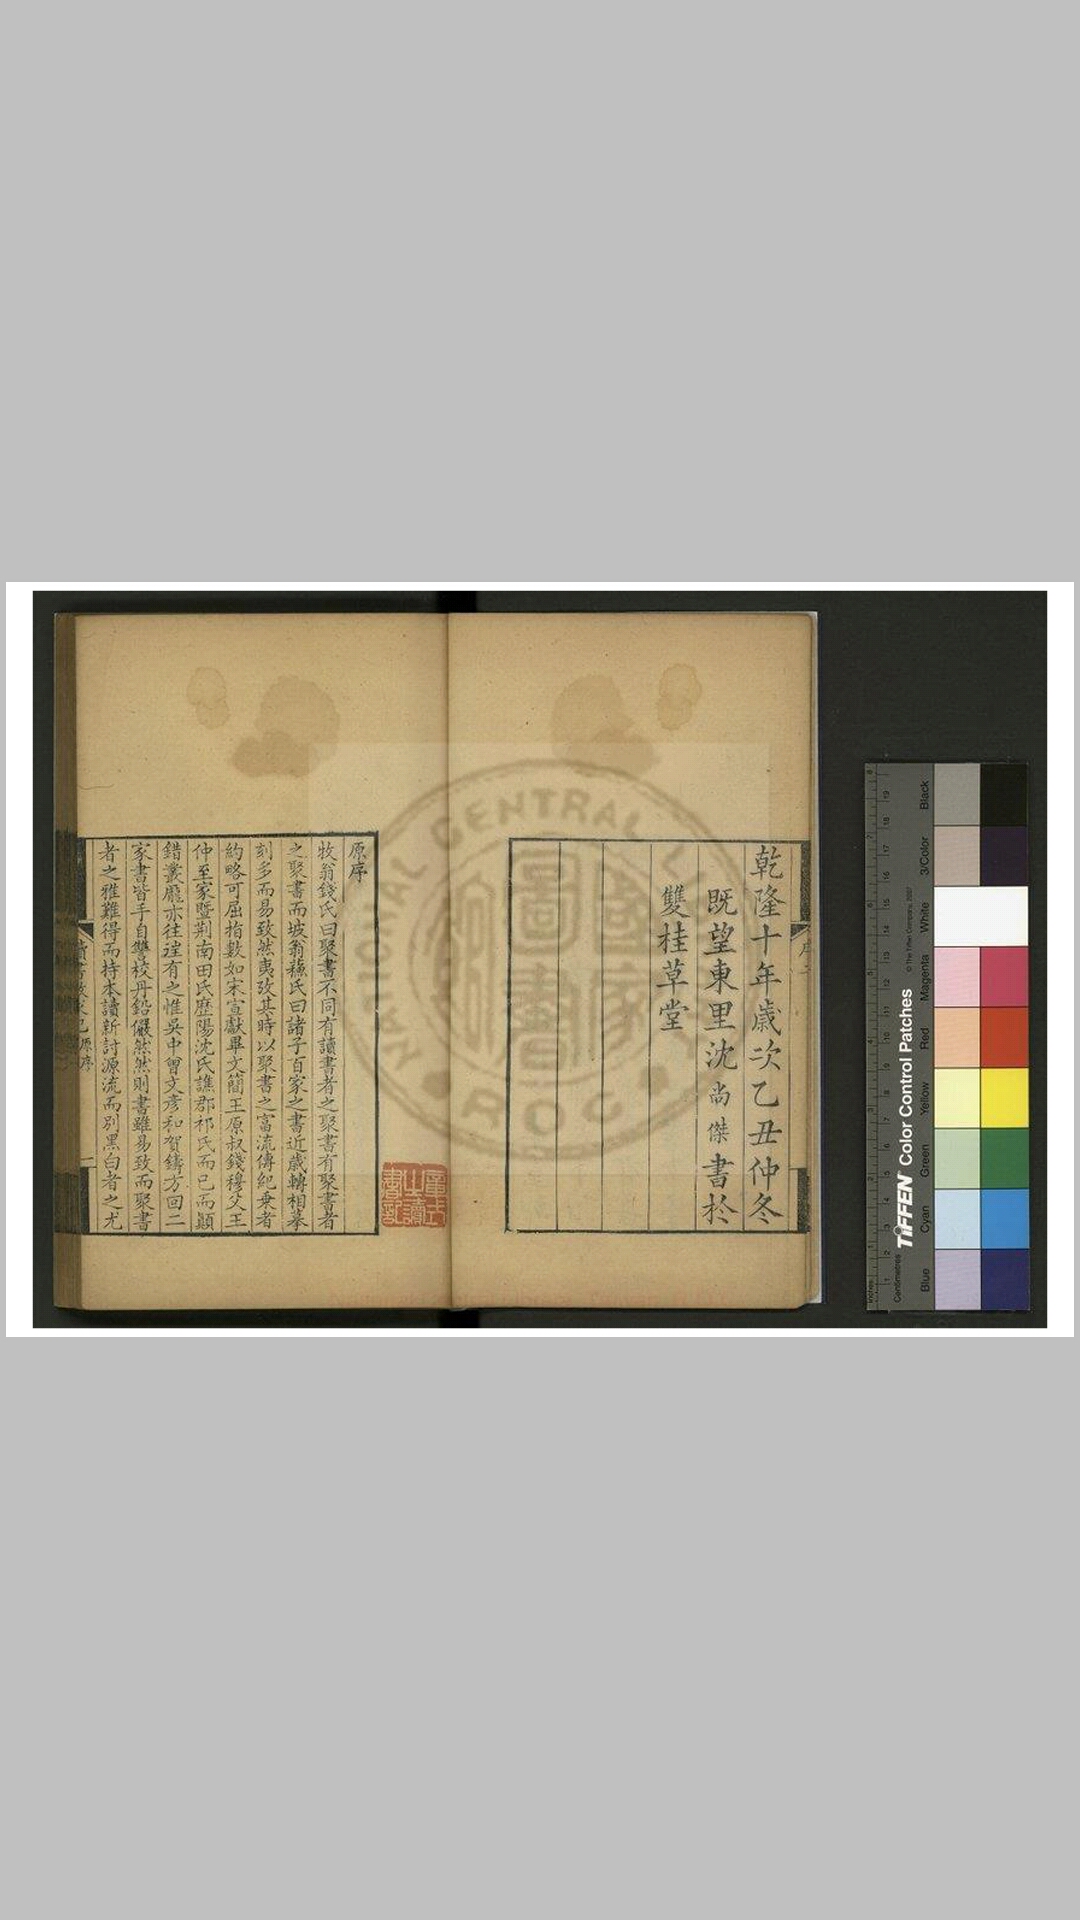 乾隆十年歲次乙丑仲冬
既望東里沈尚傑書於
雙桂草堂
原序
牧翁錢氏曰聚書不同有讀書者之聚書有聚書者
之聚書而坡翁蘓氏曰諸子百家之書近歲轉相摹
刻多而易致然夷攷其時以聚書之富流傳紀乗者
約略可屈指數如宋宣獻畢文簡王原叔錢穆父王
仲至家暨荆南田氏歷陽沈氏譙郡祁氏而已而顛
錯叢龐亦往往有之惟吳中曾文彥和賀鑄方回二
家書皆手自讐校丹鉛儼然然則書雖易致而聚書
者之雅難得而持本讀新討源流而別黑白者之尤
原序
一
NATIONAL CENTRAL LIBRARY
TIFFEN Color Control Patches
© The Tiffen Company, 2007
Blue
Cyan
Green
Yellow
Red
Magenta
White
3/Color
Black
Inches
Centimetres